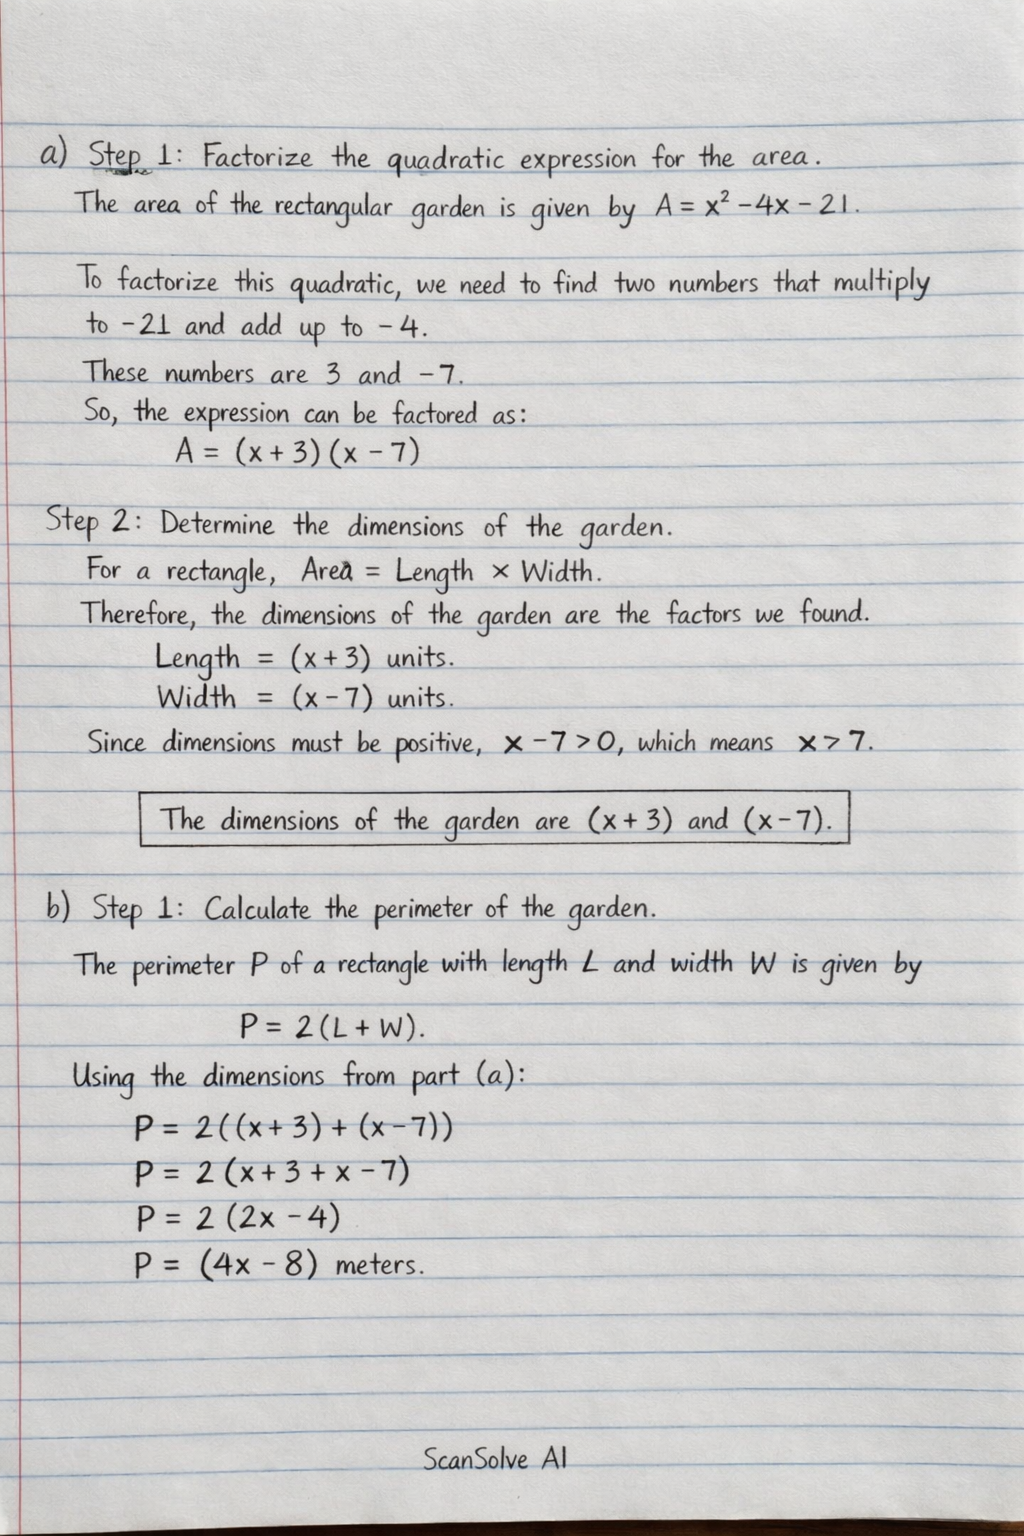 a) Step 1: Factorize the quadratic expression for the area.
The area of the rectangular garden is given by A = x² - 4x - 21.
To factorize this quadratic, we need to find two numbers that multiply
to -21 and add up to -4.
These numbers are 3 and -7.
So, the expression can be factored as:
A = (x + 3)(x - 7)
Step 2: Determine the dimensions of the garden.
For a rectangle, Area = Length × Width.
Therefore, the dimensions of the garden are the factors we found.
Length = (x + 3) units.
Width = (x - 7) units.
Since dimensions must be positive, x - 7 > 0, which means x > 7.
The dimensions of the garden are (x + 3) and (x - 7).
b) Step 1: Calculate the perimeter of the garden.
The perimeter P of a rectangle with length L and width W is given by
P = 2(L + W).
Using the dimensions from part (a):
P = 2((x + 3) + (x - 7))
P = 2(x + 3 + x - 7)
P = 2(2x - 4)
P = (4x - 8) meters.
ScanSolve AI